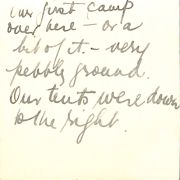 Our first camp
over here – or a
bit of it. – very
pebbly ground.
Our tents were down
to the right.